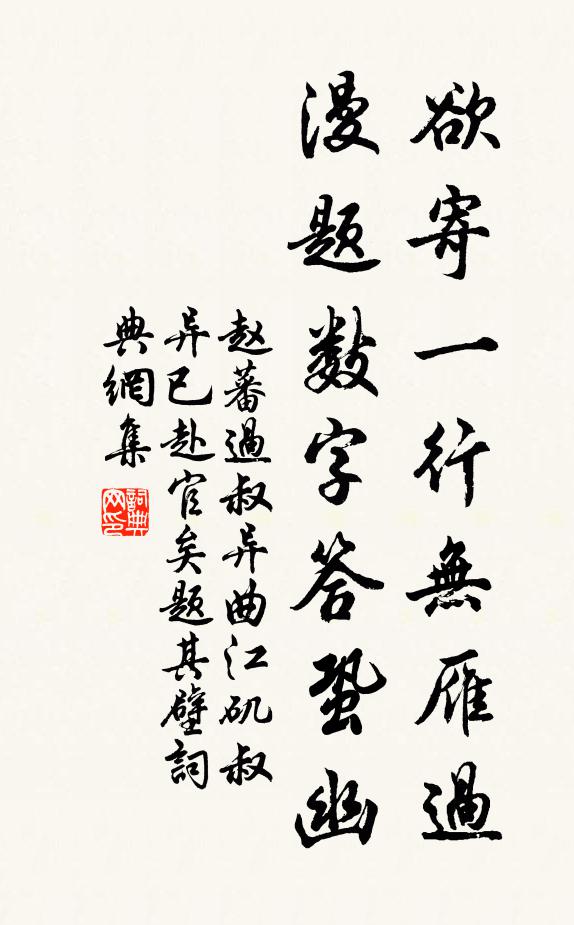 欲寄一行無雁過
漫题数字答蛩幽
赵蕃過叔异曲江矶叔
异已赴官矣题其壁詞
典網集
詞典网印